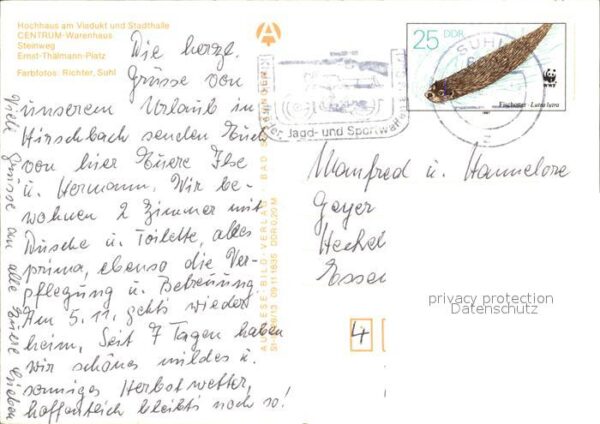 Hochhaus am Viadukt und Stadthalle
CENTRUM-Warenhaus
Steinweg
Ernst-Thälmann-Platz
Farbfotos: Richter, Suhl
Die herzl.
Grüsse von
unserem Urlaub in
Hirschbach senden Euch
von hier Euere Ilse
u. Hermann. Wir be-
wohnen 2 Zimmer mit
Dusche u. Toilette, alles
prima, ebenso die Ver-
pflegung u. Betreuung.
Am 5.11. gehts wieder
heim, Seit 7 Tagen haben
wir schönes mildes u.
sonniges Herbstwetter,
hoffentlich bleibts noch so!
Viele Grüsse an alle Eure Lieben
AUSLESE-BILD-VERLAG · BAD
09 11 1635 DDR 0,20 M
25 DDR
WWF
Fischotter · Lutra lutra
SUHL
Jagd- und Sportwaffen
Manfred u. Hannelore
Geyer
Heckel
Essen
privacy protection
Datenschutz
4